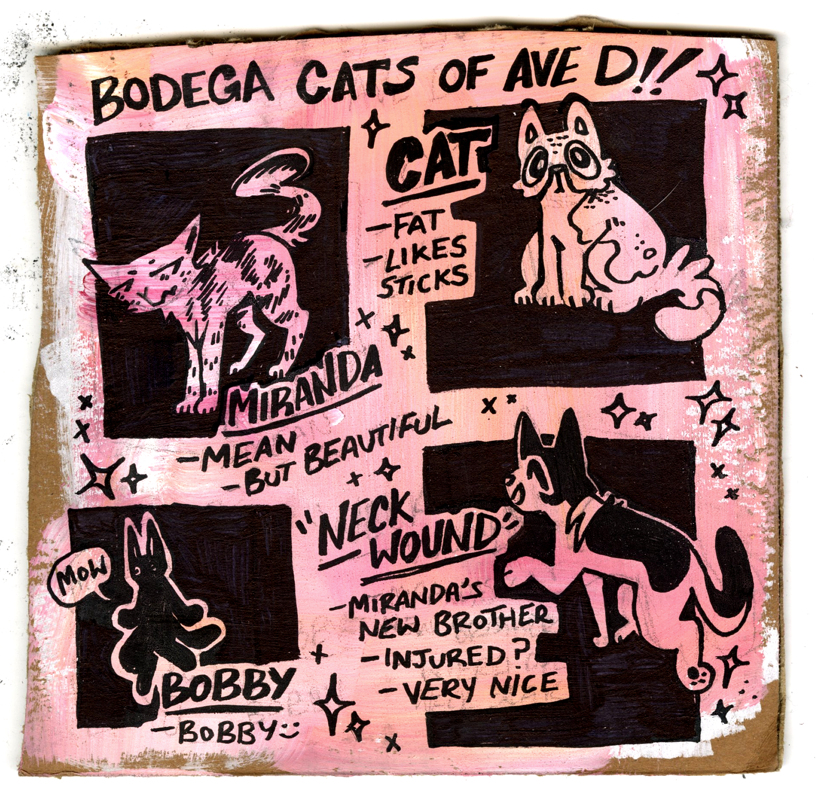 BODEGA CATS OF AVE D!!
CAT
-FAT
-LIKES
STICKS
MIRANDA
-MEAN
-BUT BEAUTIFUL
"NECK
WOUND"
-MIRANDA'S
NEW BROTHER
-INJURED?
-VERY NICE
MOW
BOBBY
-BOBBY:)